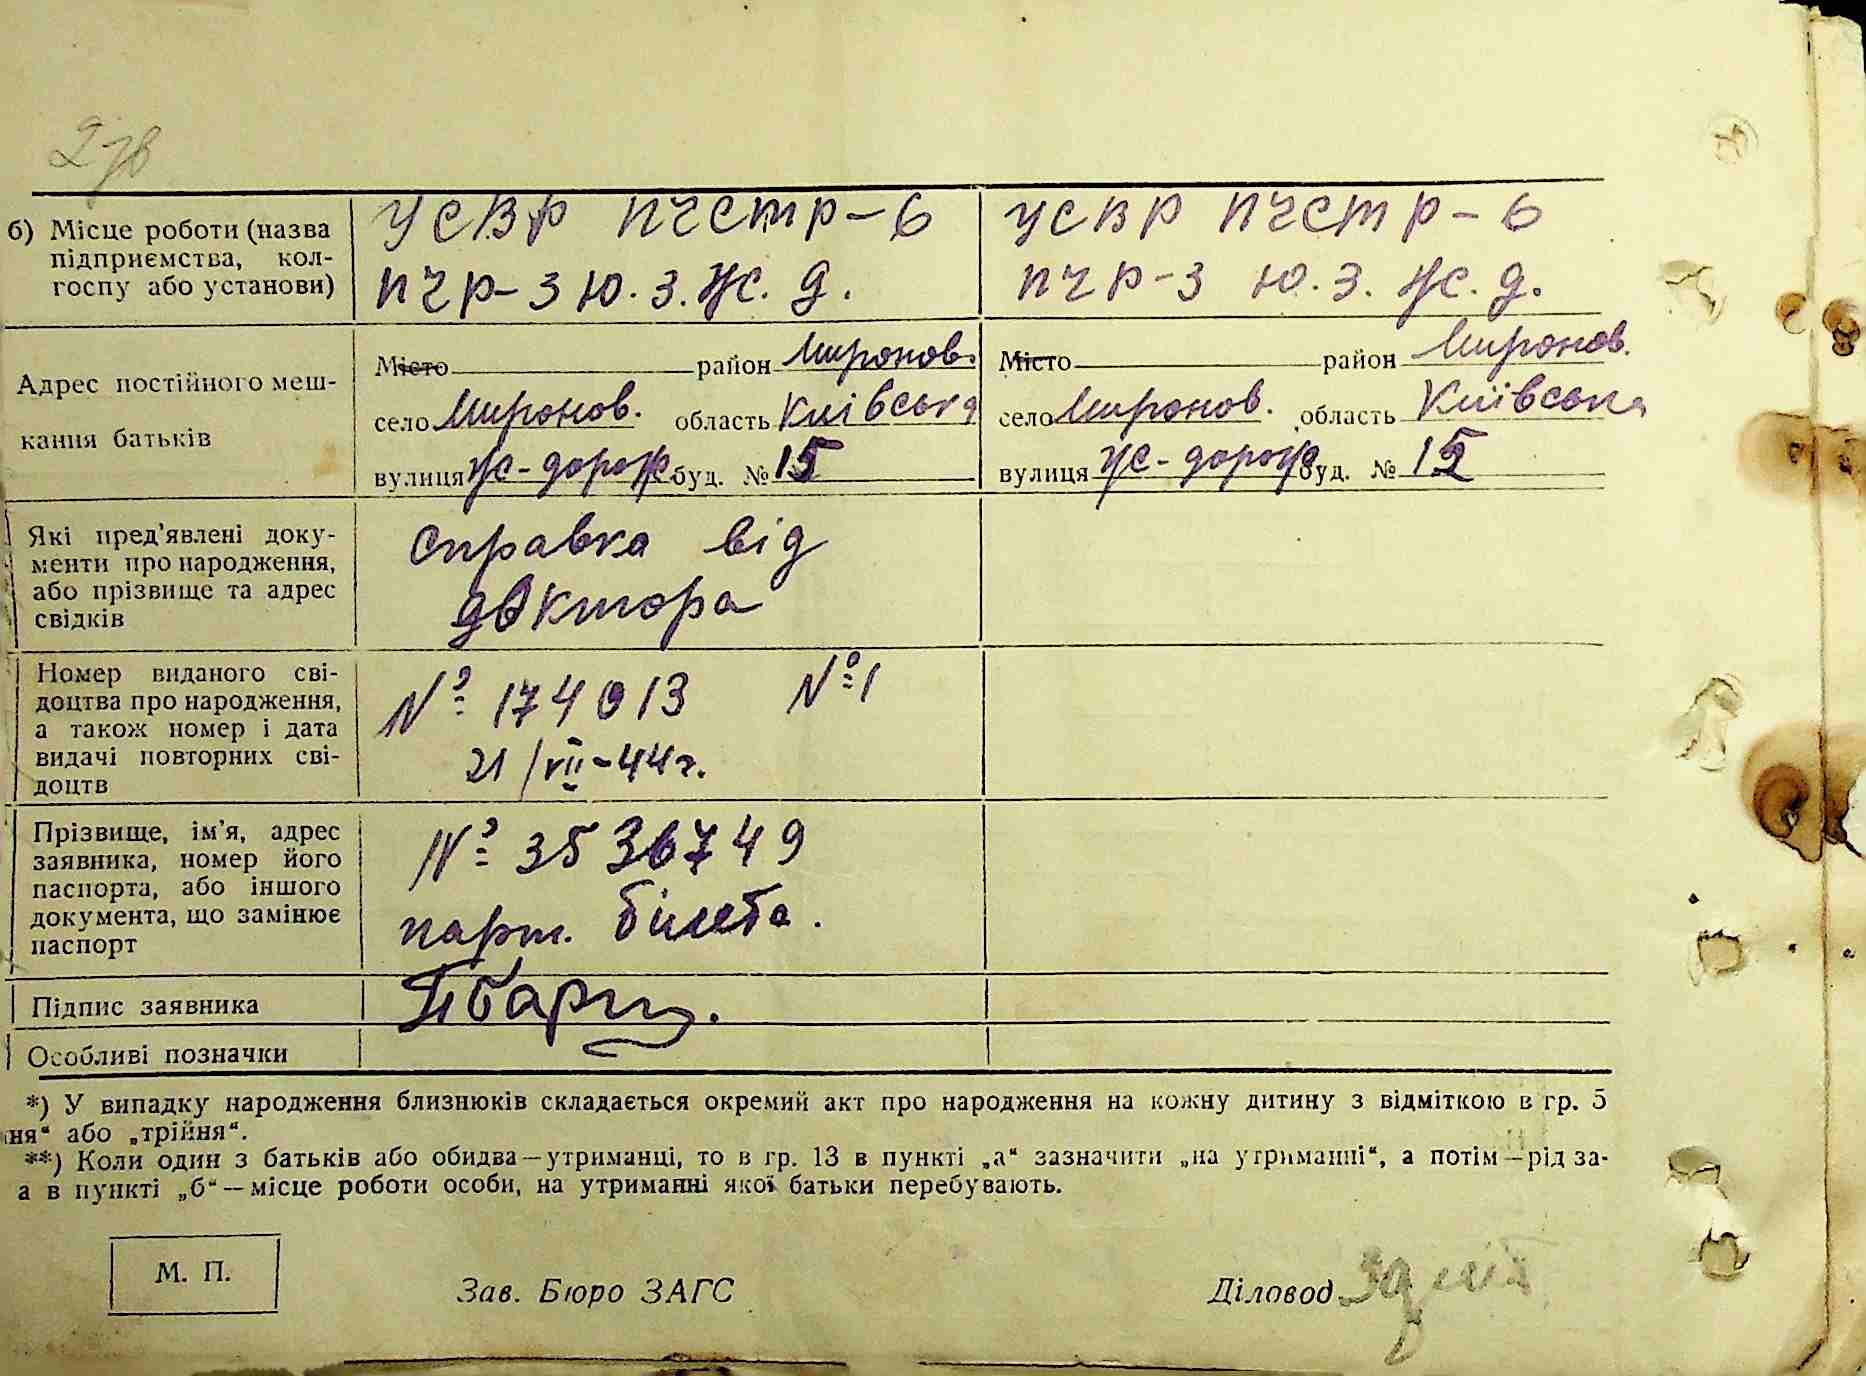 2 зв
б) Місце роботи (назва
підприємства, кол-
госпу або установи)
УСВР ПЧСТР-6
ПЧР-3 Ю.З.Ж.Д.
УСВР ПЧСТР-6
ПЧР-3 Ю.З.Ж.Д.
Адрес постійного меш-
кання батьків
Місто район Миронов.
село Миронов. область Київська
вулиця Ж-дорож буд. № 15
Місто район Миронов.
село Миронов. область Київська
вулиця Ж-дорож буд. № 15
Які пред'явлені доку-
менти про народження,
або прізвище та адрес
свідків
Справка від
доктора
Номер виданого сві-
доцтва про народження,
а також номер і дата
видачі повторних сві-
доцтв
№ 174013 №1
21/VII-44г.
Прізвище, ім'я, адрес
заявника, номер його
паспорта, або іншого
документа, що замінює
паспорт
№ 3536749
парт. білета.
Підпис заявника
Особливі позначки
*) У випадку народження близнюків складається окремий акт про народження на кожну дитину з відміткою в гр. 5
ня" або „трійня".
**) Коли один з батьків або обидва—утриманці, то в гр. 13 в пункті „а" зазначити „на утриманні", а потім—рід за-
а в пункті „б"—місце роботи особи, на утриманні якої батьки перебувають.
М. П.
Зав. Бюро ЗАГС
Діловод